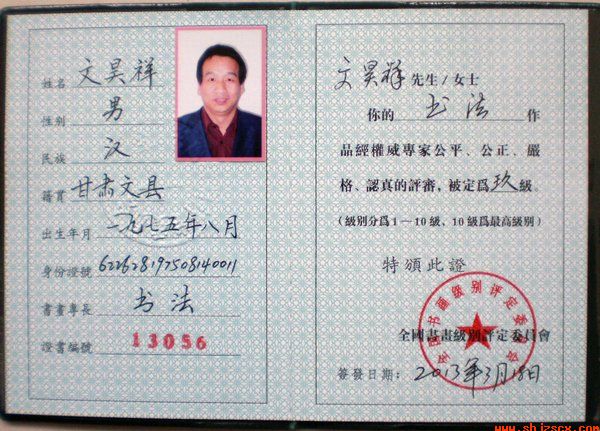 姓名 文昊祥
性别 男
民族 汉
籍貫 甘肃文县
出生年月 一九七五年八月
身份證號 622628197508140011
書畫專長 书法
證書編號 13056
文昊祥 先生/女士
你的 书法 作
品經權威專家公平、公正、嚴
格、認真的評審，被定爲 玖 級。
(級别分爲1—10級、10級爲最高級别)
特頒此證
全國書畫級别評定委員會
全国书画级别评定委员会
簽發日期： 2013年3月18日
www.shjzscx.com